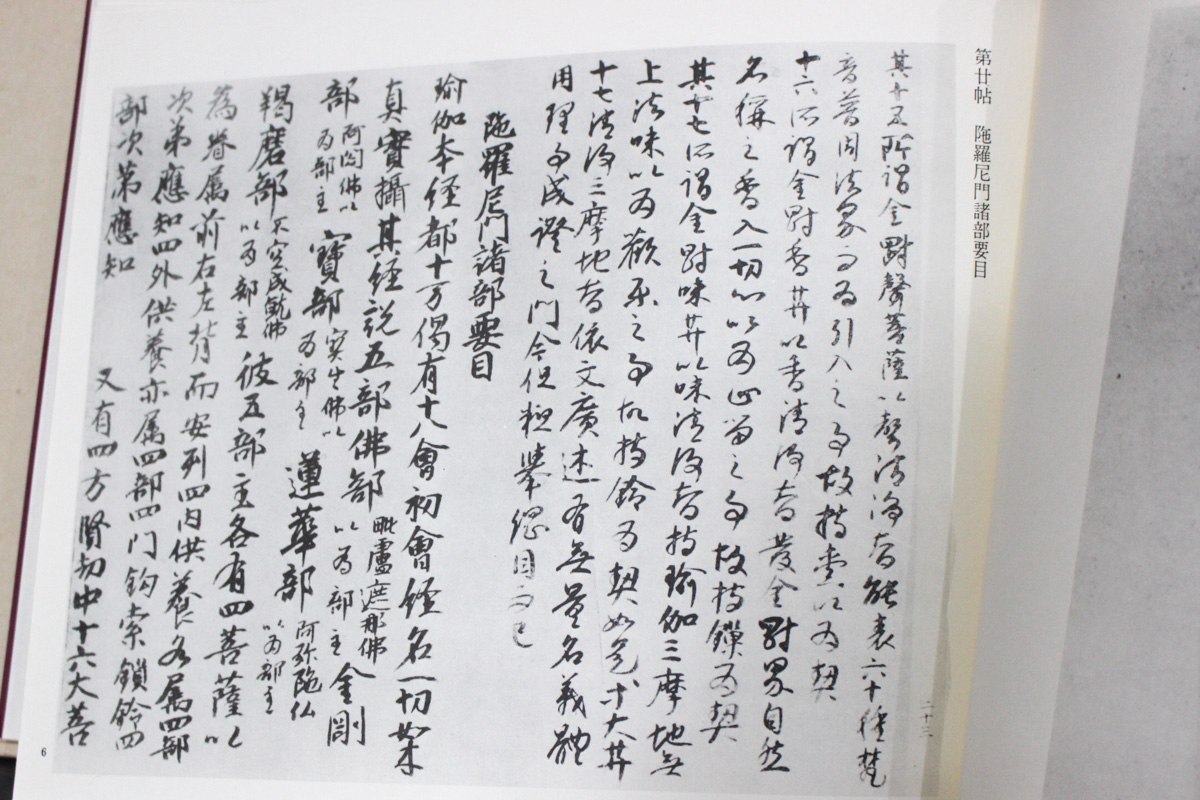 第廿帖 陁羅尼門諸部要目
其廿五所謂金剛聲菩薩以聲清浄智能表六十種梵
音普周法界而为引入之句故持索以为契
十六所謂金剛香菩以香清浄智發金剛界自然
名稱之香入一切心以为止留之句故持鏁为契
其廿七所謂金剛味菩以味清浄智持瑜伽三摩地无
上法味以为歡樂之句故持鈴为契如是等大菩
十七清浄三摩地智依文廣述有無量名義體
用理事成證之門今但粗舉綱目而已
陁羅尼門諸部要目
瑜伽本經都十万偈有十八會初會經名一切如来
真實攝其經説五部佛部毗盧遮那佛以为部主金剛
部阿閦佛以为部主寶部寳生佛以为部主蓮華部阿弥陁仏以为部主
羯磨部不空成就佛以为部主彼五部主各有四菩薩以
為眷属前右左背而安列四内供養各属四部
次第應知四外供養亦属四部四門鈎索鎖鈴四
部次第應知 又有四方賢劫中十六大菩
二十三
6